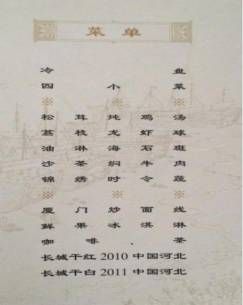 菜单
冷 盘
四 小 菜
松 茸 炖 鸡 汤
荔 枝 龙 虾 球
油 淋 海 石 斑
沙 茶 焖 牛 肉
锦 绣 时 令 蔬
厦 门 炒 面 线
鲜 果 冰 淇 淋
咖 啡 茶
长城干红 2010 中国河北
长城干白 2011 中国河北